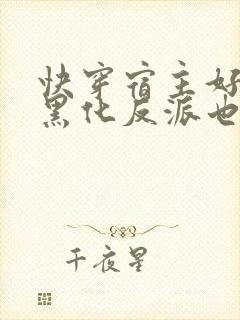 快穿宿主好
黑化反派也
千夜星